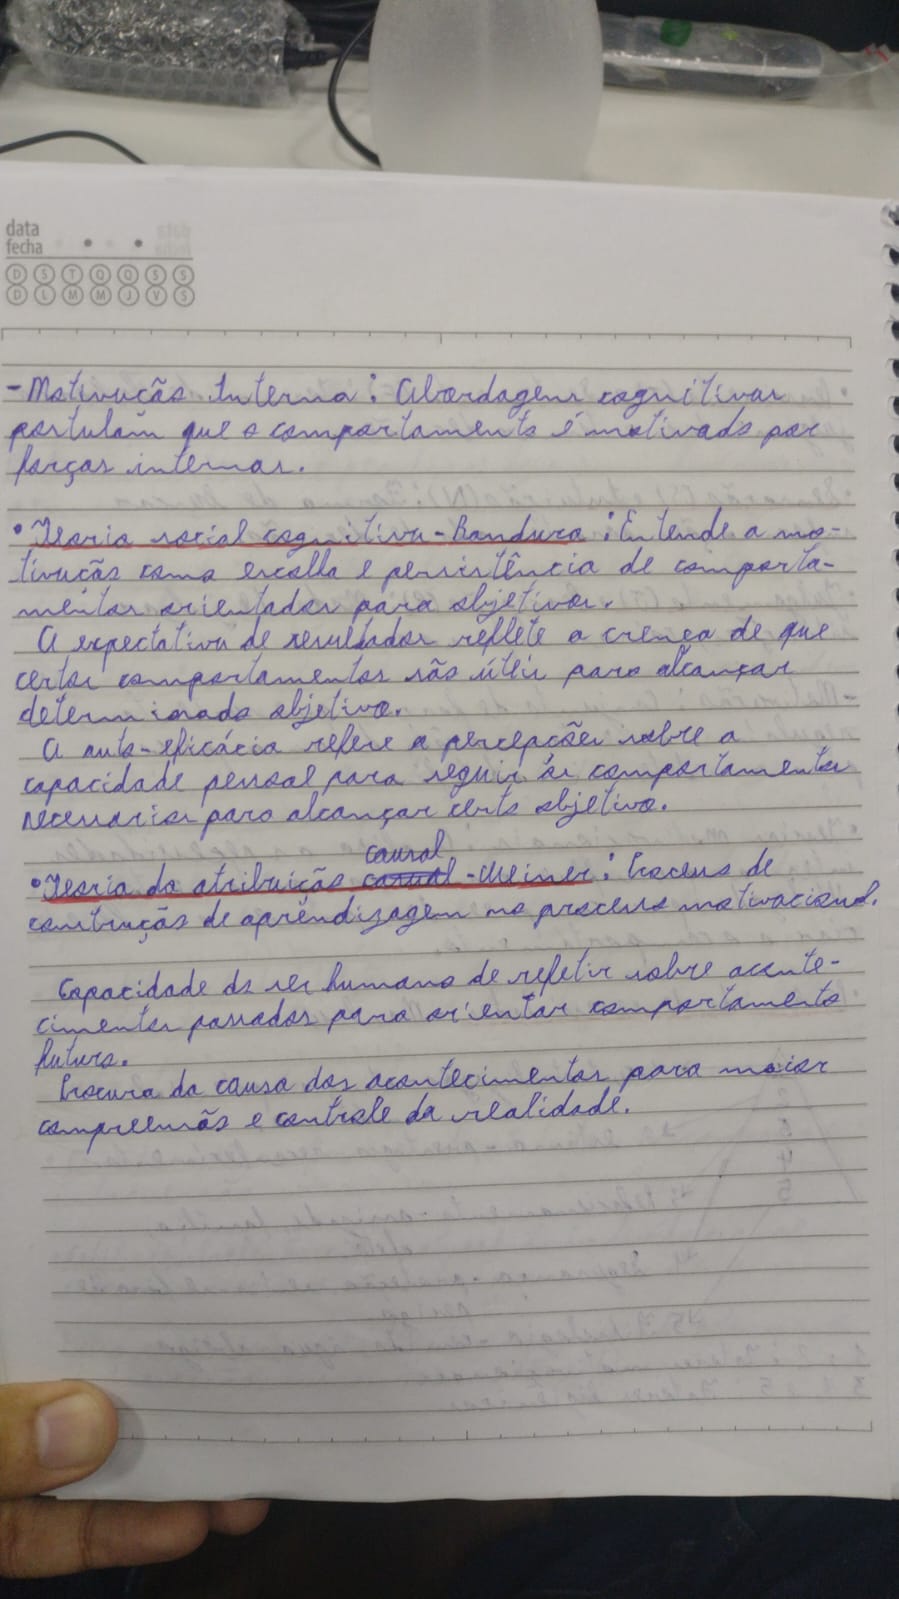 data
fecha
D S T Q Q S S
D L M M J V S
- Motivação Interna: Abordagens cognitivas
postulam que o comportamento é motivado por
forças internas.
• Teoria social cognitiva - Bandura: Entende a mo-
tivação como escolha e persistência de comporta-
mentos orientados para objetivos.
A expectativa de resultados reflete a crença de que
certos comportamentos são úteis para alcançar
determinado objetivo.
A auto-eficácia refere a percepções sobre a
capacidade pessoal para seguir os comportamentos
necessarios para alcançar certo objetivo.
causal
• Teoria da atribuição casual - Weiner: Processo de
construção de aprendizagem no processo motivacional.
Capacidade do ser humano de refletir sobre aconte-
cimentos passados para orientar comportamento
futuro.
Procura da causa dos acontecimentos para maior
compreensão e controle da realidade.